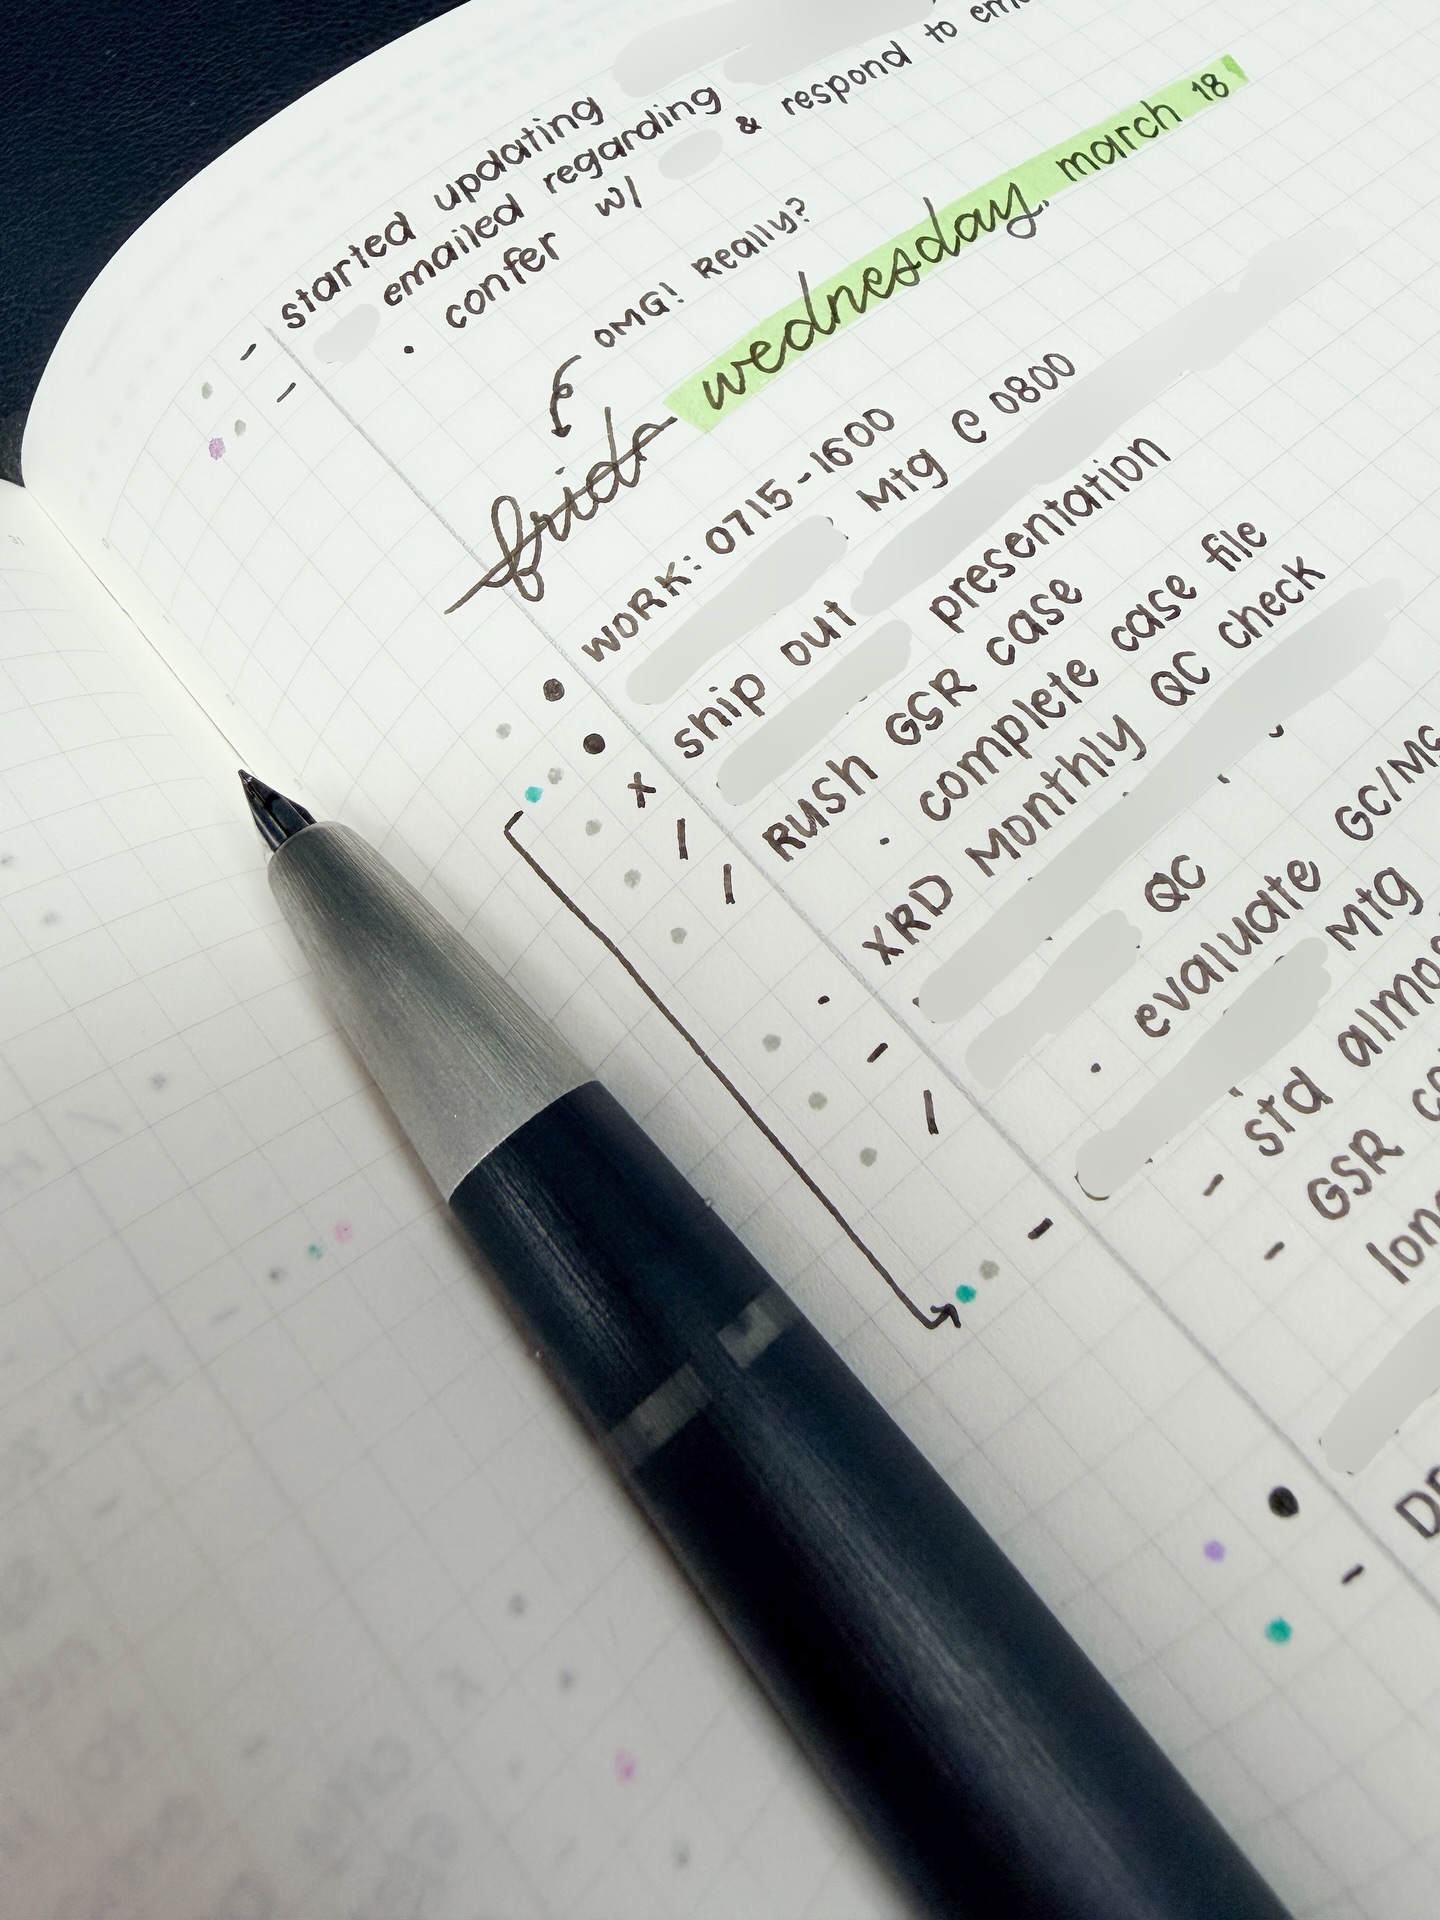 started updating
emailed regarding
• confer w/ & respond to
OMG! Really?
frida wednesday, march 18
WORK: 0715-1600
Mtg @ 0800
ship out
presentation
RUSH GSR case
• complete case file
XRD Monthly QC check
QC
• evaluate GC/MS
Mtg
- std almost
- GSR